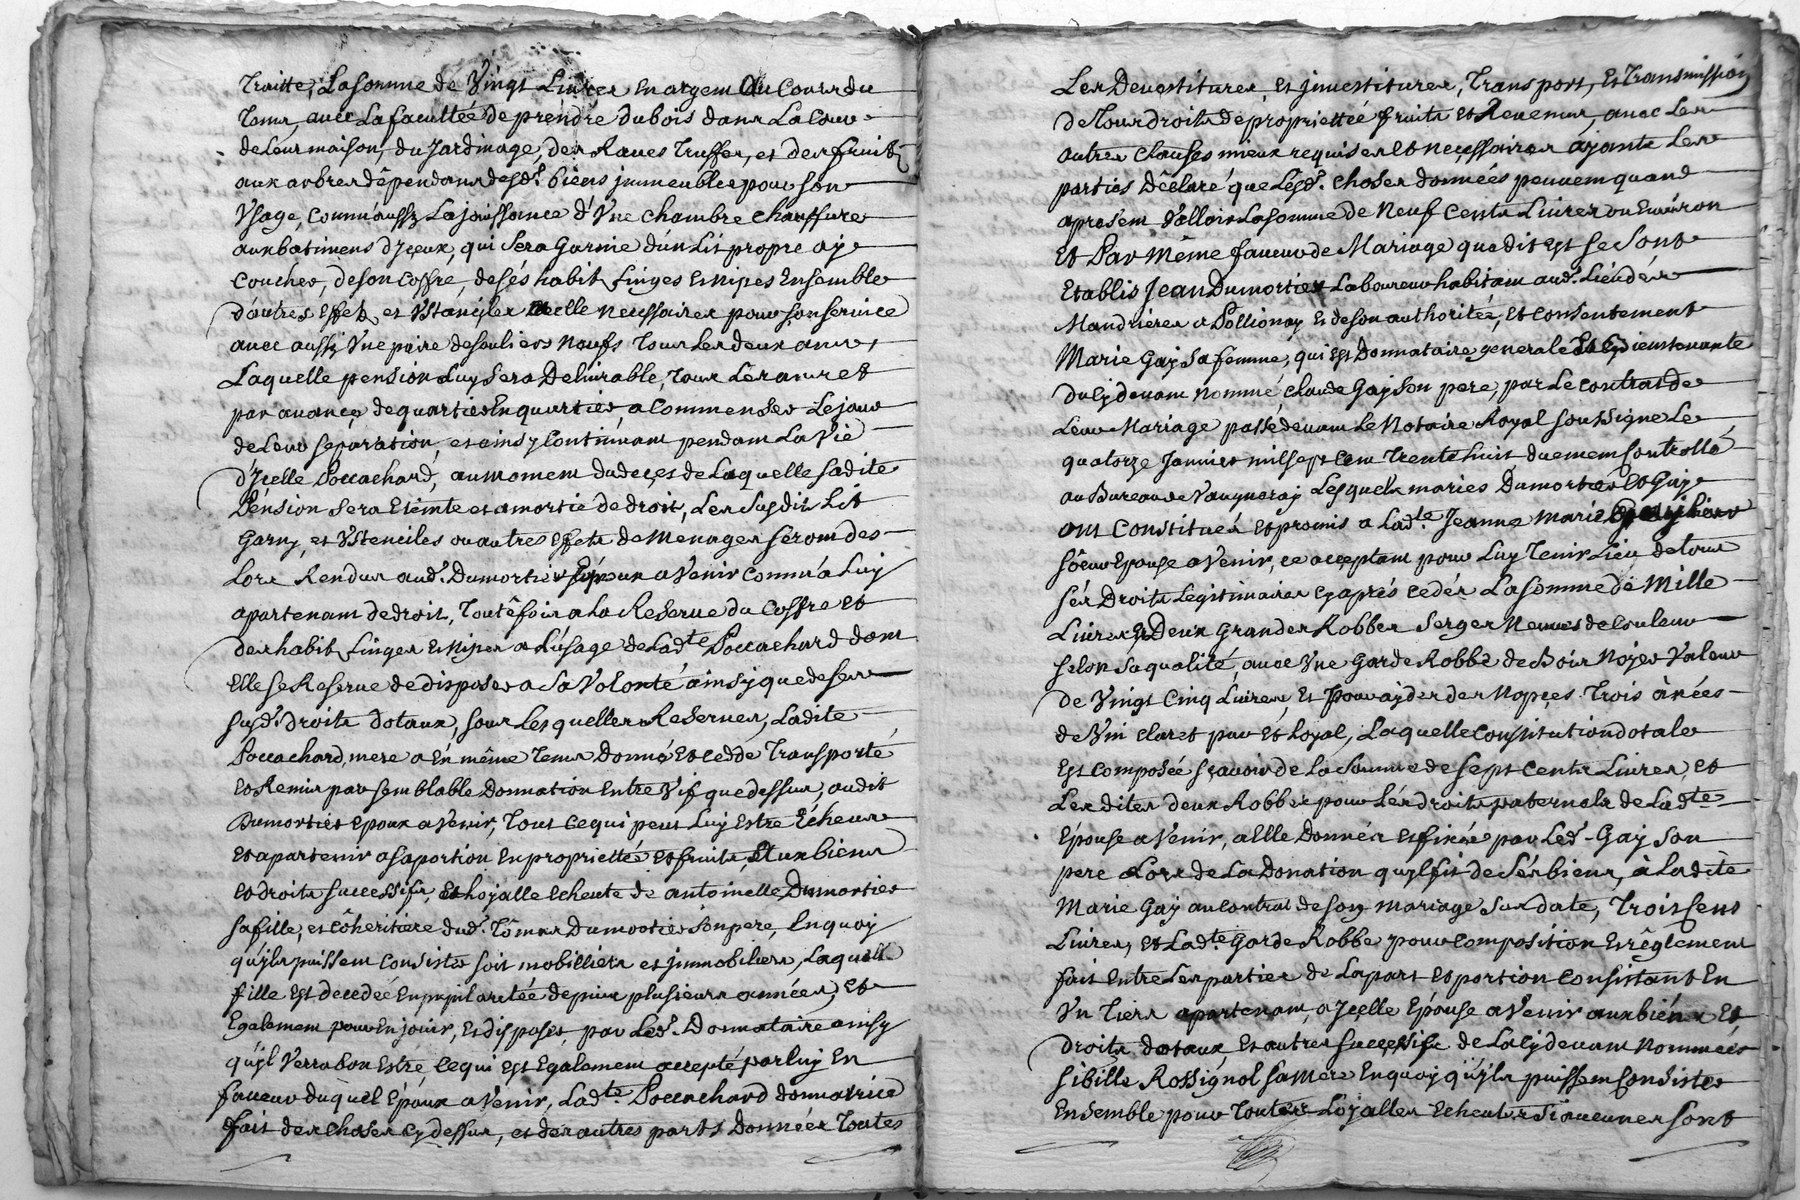 Traitte, La somme de Vingt Livres en argent au Cours du
Tems, avec La facultée de prendre du bois dans La Cour
de Leur maison, du Jardinage, des Raves Truffes, et des fruits
aux arbres dêpendans desd. biens jmmeubles pour son
Vsage, Comm'aussy La joüissance d'Vne chambre chauffure
aux batimens d'Jceux, qui sera Garnie d'un Lit propre a y
Coucher, de son Coffre, de sés habits Linges et Nipes Ensemble
d'autres Effets et Vstanciles a elle necessaires pour son service
avec aussy Vne paire de souliers Neufs Tous Les deux ans,
Laquelle pension Luy sera Delivrable, Tous Les ans et
par avance, de quartier En quartier, a Commenser Le jour
de Leur separation, et ainsy Continuant pendant La Vie
d'Jcelle Poccachard, au moment du deces de Laquelle sadite
Pénsion sera Eteinte et amortie de droit, Les susdits Lit
Garny, et Vstenciles ou autres Effets de Menages seront des-
Lors Rendus aud. Dumortier Epoux a Venir Comm'a Luy
apartenant de droit, Toutêfois a La Reserve du Coffre et
des habits Linges et Nipes a L'usage de Ladte. Poccachard dont
Elle se Reserve de disposer a sa Volonté ainsy que de ses
susd. Droits dotaux, sous Lesquelles Reserves, Ladite
Poccachard, mere a én même Tems Donné et cedde Transporté
et Remis par semblable donnation Entre Vif que dessus, audit
Dumortier Epoux a Venir, Tout ce qui peut Luy Estre Echeus
et apartenir a sa portion En proprietté et fruits, Et aux biens
et droits successifs, et hoyalle Echeute de antoinette Dumortier
sa fille, et côheritiere dud. Tômas Dumortier son pere, En quoy
qu'ils puissent Consister soit mobilliers et jmmobiliers, Laquelle
fille Est decedée En pupilaretée depuis plusieurs années, et
Egalement pour En joüir, Et disposer, par Led. Donnataire ainsy
qu'jl Verra bon Estre, ce qui est Egalement accepté par luy En
faveur duquel Epoux a Venir, Ladte. Poccachard donnatrice
fait des choses cy dessus, et des autres parts Données Toutes
Les Devestitures, et jnvestitures, Transport, et Transmission
de Tous droits de propriettée fruits et Revenus, avec Les
autres Clauses mieux requises et necessoires ajants Les
parties Dêclaré que Lesd. choses données peuvent quand
apresent Valloir La somme de Neuf Cents Livres ou Environ
Et Par Même faveur de Mariage que dit est se sont
Etablis Jean Dumortier Laboureur habitant aud. Lieu dés
Mandrieres a Pollionay Et de son authoritée, et Consentement
Marie Gay sa femme, qui est Donnataire generale
du cy devant Nommé Claude Gay son pere, par Le Contrat de
Leur Mariage passé devant Le Notaire Royal soussigne Le
quatorze Janvier mil sept cent Trente huit duement Controllé
au Bureau de Vaugneray Lesquels maries Dumortier et Gay
ont Constitués et promis a Ladte. Jeanne Marie
sôeur Epouse a Venir, ce acceptant pour Luy Tenir Lieu de tous
sés Droits Legitimaires cy aprés cedés La somme de Mille
Livres Et Deux Grandes Robbes serges Neuves de Couleur
selon sa qualité, avec Vne Garde Robbe de Bois Noyer Valeur
de Vingt Cinq Livres, Et Pour ayder des Nopces Trois ànées
de Vin Claret pur et Loyal, Laquelle Constitution dotale
Est Composée sçavoir de La somme de sept Cents Livres, et
Les dites deux Robbes pour Lés droits paternels de Ladte.
Epouse a Venir, a Elle Donnés et fixés par Led. Gay son
pere Lors de La Donation qu'jl fit de sés biens, à Ladite
Marie Gay au Contrat de son Mariage Sus daté, Trois Cens
Livres, et Ladte. Garde Robbe pour Composition et rêglement
fait Entre Les parties de La part et portion Consistant En
Vn Tiers apartenant, a Jcelle Epouse a Venir aux biens Et
droits dotaux, et autres successifs de La cy devant Nommée
sibille Rossignol sa Mere En quoy qu'jls puissent Consister
Ensemble pour Toutes Loyalles Echeutes si aucunes sont